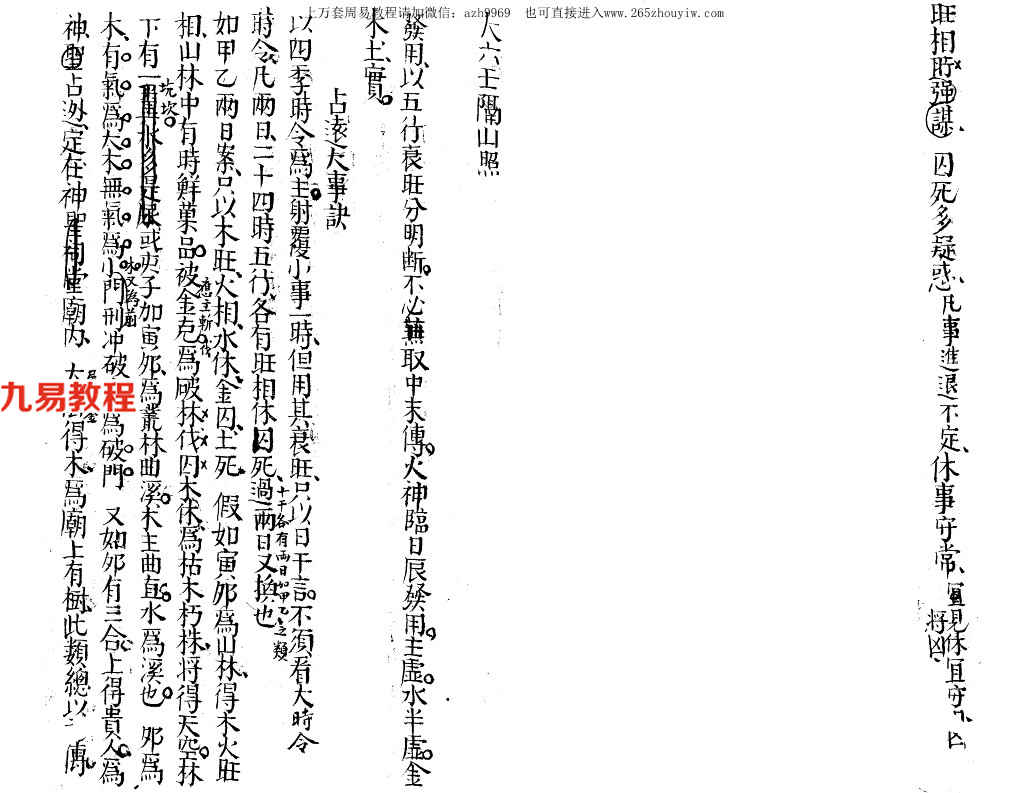 上万套周易教程请加微信：azh9969　也可直接进入www.265zhouyiw.com
旺相時强謀　囚死多疑惑　凡事進退不定　休事守常　宜見休宜守
將凶
大六壬隔山照
發用以五行衰旺分明斷不必兼取中末傳火神臨日辰發用主虛水半虛金
木土實
占遠大事訣
以四季時令爲主射覆小事一時但用其衰旺只以日干言不須看大時令
時令凡兩日二十四時五行各有旺相休囚死過兩日又換也
十干各有兩日如甲乙之類
如甲乙兩日案只以木旺火相水休金囚土死　假如寅夘爲山林得木火旺
相山林中有時鮮菓品被金克爲破林伐囚木休爲枯木朽株將得天空林
應主斬伐
下有坑坎
或與子加寅夘爲叢林曲溪木主曲直水爲溪也　夘爲
木有氣爲大木無氣爲小門刑冲破爲破門　又如夘有三合上得貴人爲
神聖占迯定在神聖祠堂廟內　得木爲廟上有樹此類總以
九易教程